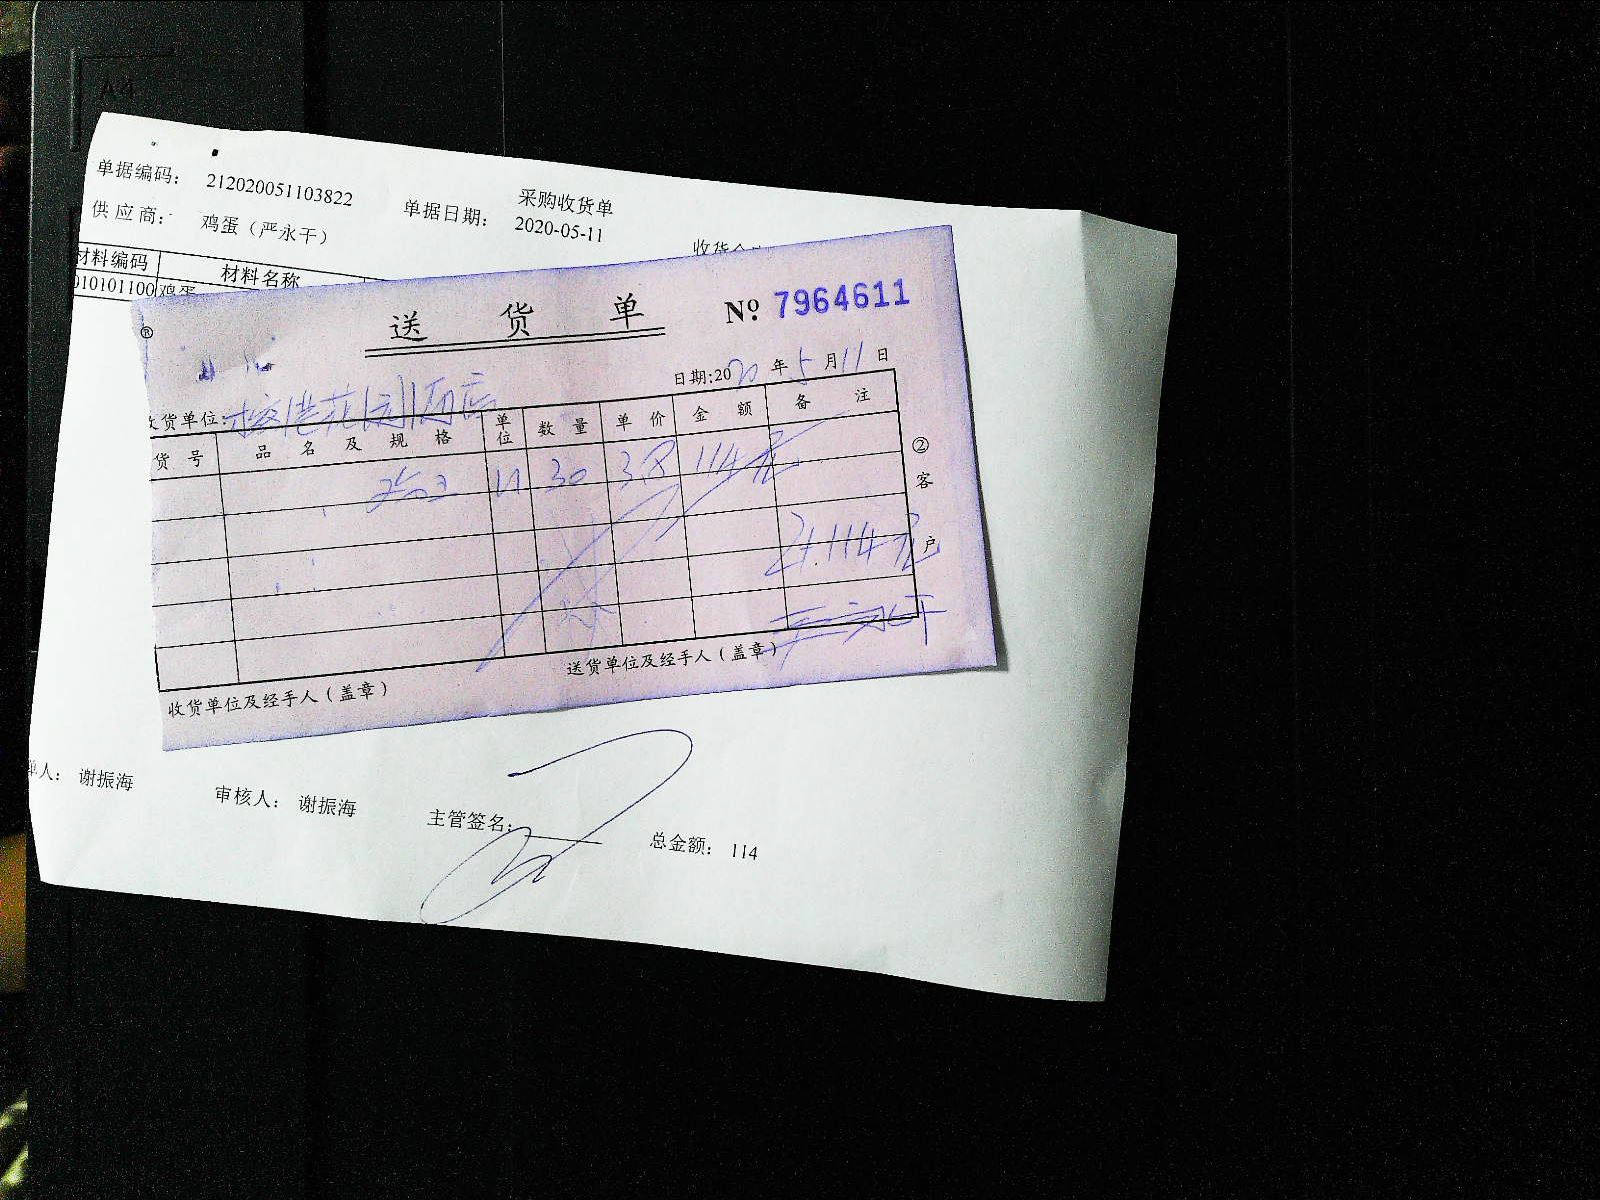 A4
采购收货单
单据编码: 212020051103822 单据日期: 2020-05-11
供应商: 鸡蛋（严永干）
材料编码 材料名称
010101100 鸡蛋
送货单 Nº 7964611
日期:2020年5月11日
收货单位: 花园酒店
货号 品名及规格 单位 数量 单价 金额 备注
30 3.8 114元
114元
② 客户
严永干
收货单位及经手人（盖章） 送货单位及经手人（盖章）
单人: 谢振海 审核人: 谢振海 主管签名: 总金额: 114